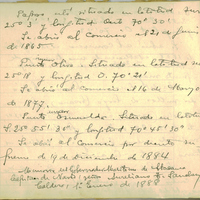 Paposo está situado en latitud Sur
25° 3' y longitud Oest 70° 30'.
Se abrió al Comercio el 21 de Junio
de 1865
Punta Oliva. Situado en latitud
25° 18' y longitud O. 70° 21'.
Se abrió al Comercio el 14 de Mayo
de 1877.
Punta Esmeralda. Situado en latitud
S. 25° 55' 30" y longitud 70° 45' 30"
Se abrió al Comercio por decreto su
premo de 14 de diciembre de 1884
Memoria del Gobernador Marítimo de Atacama
Capitan de Navio, señor
Caldera, 1° Enero de 1888